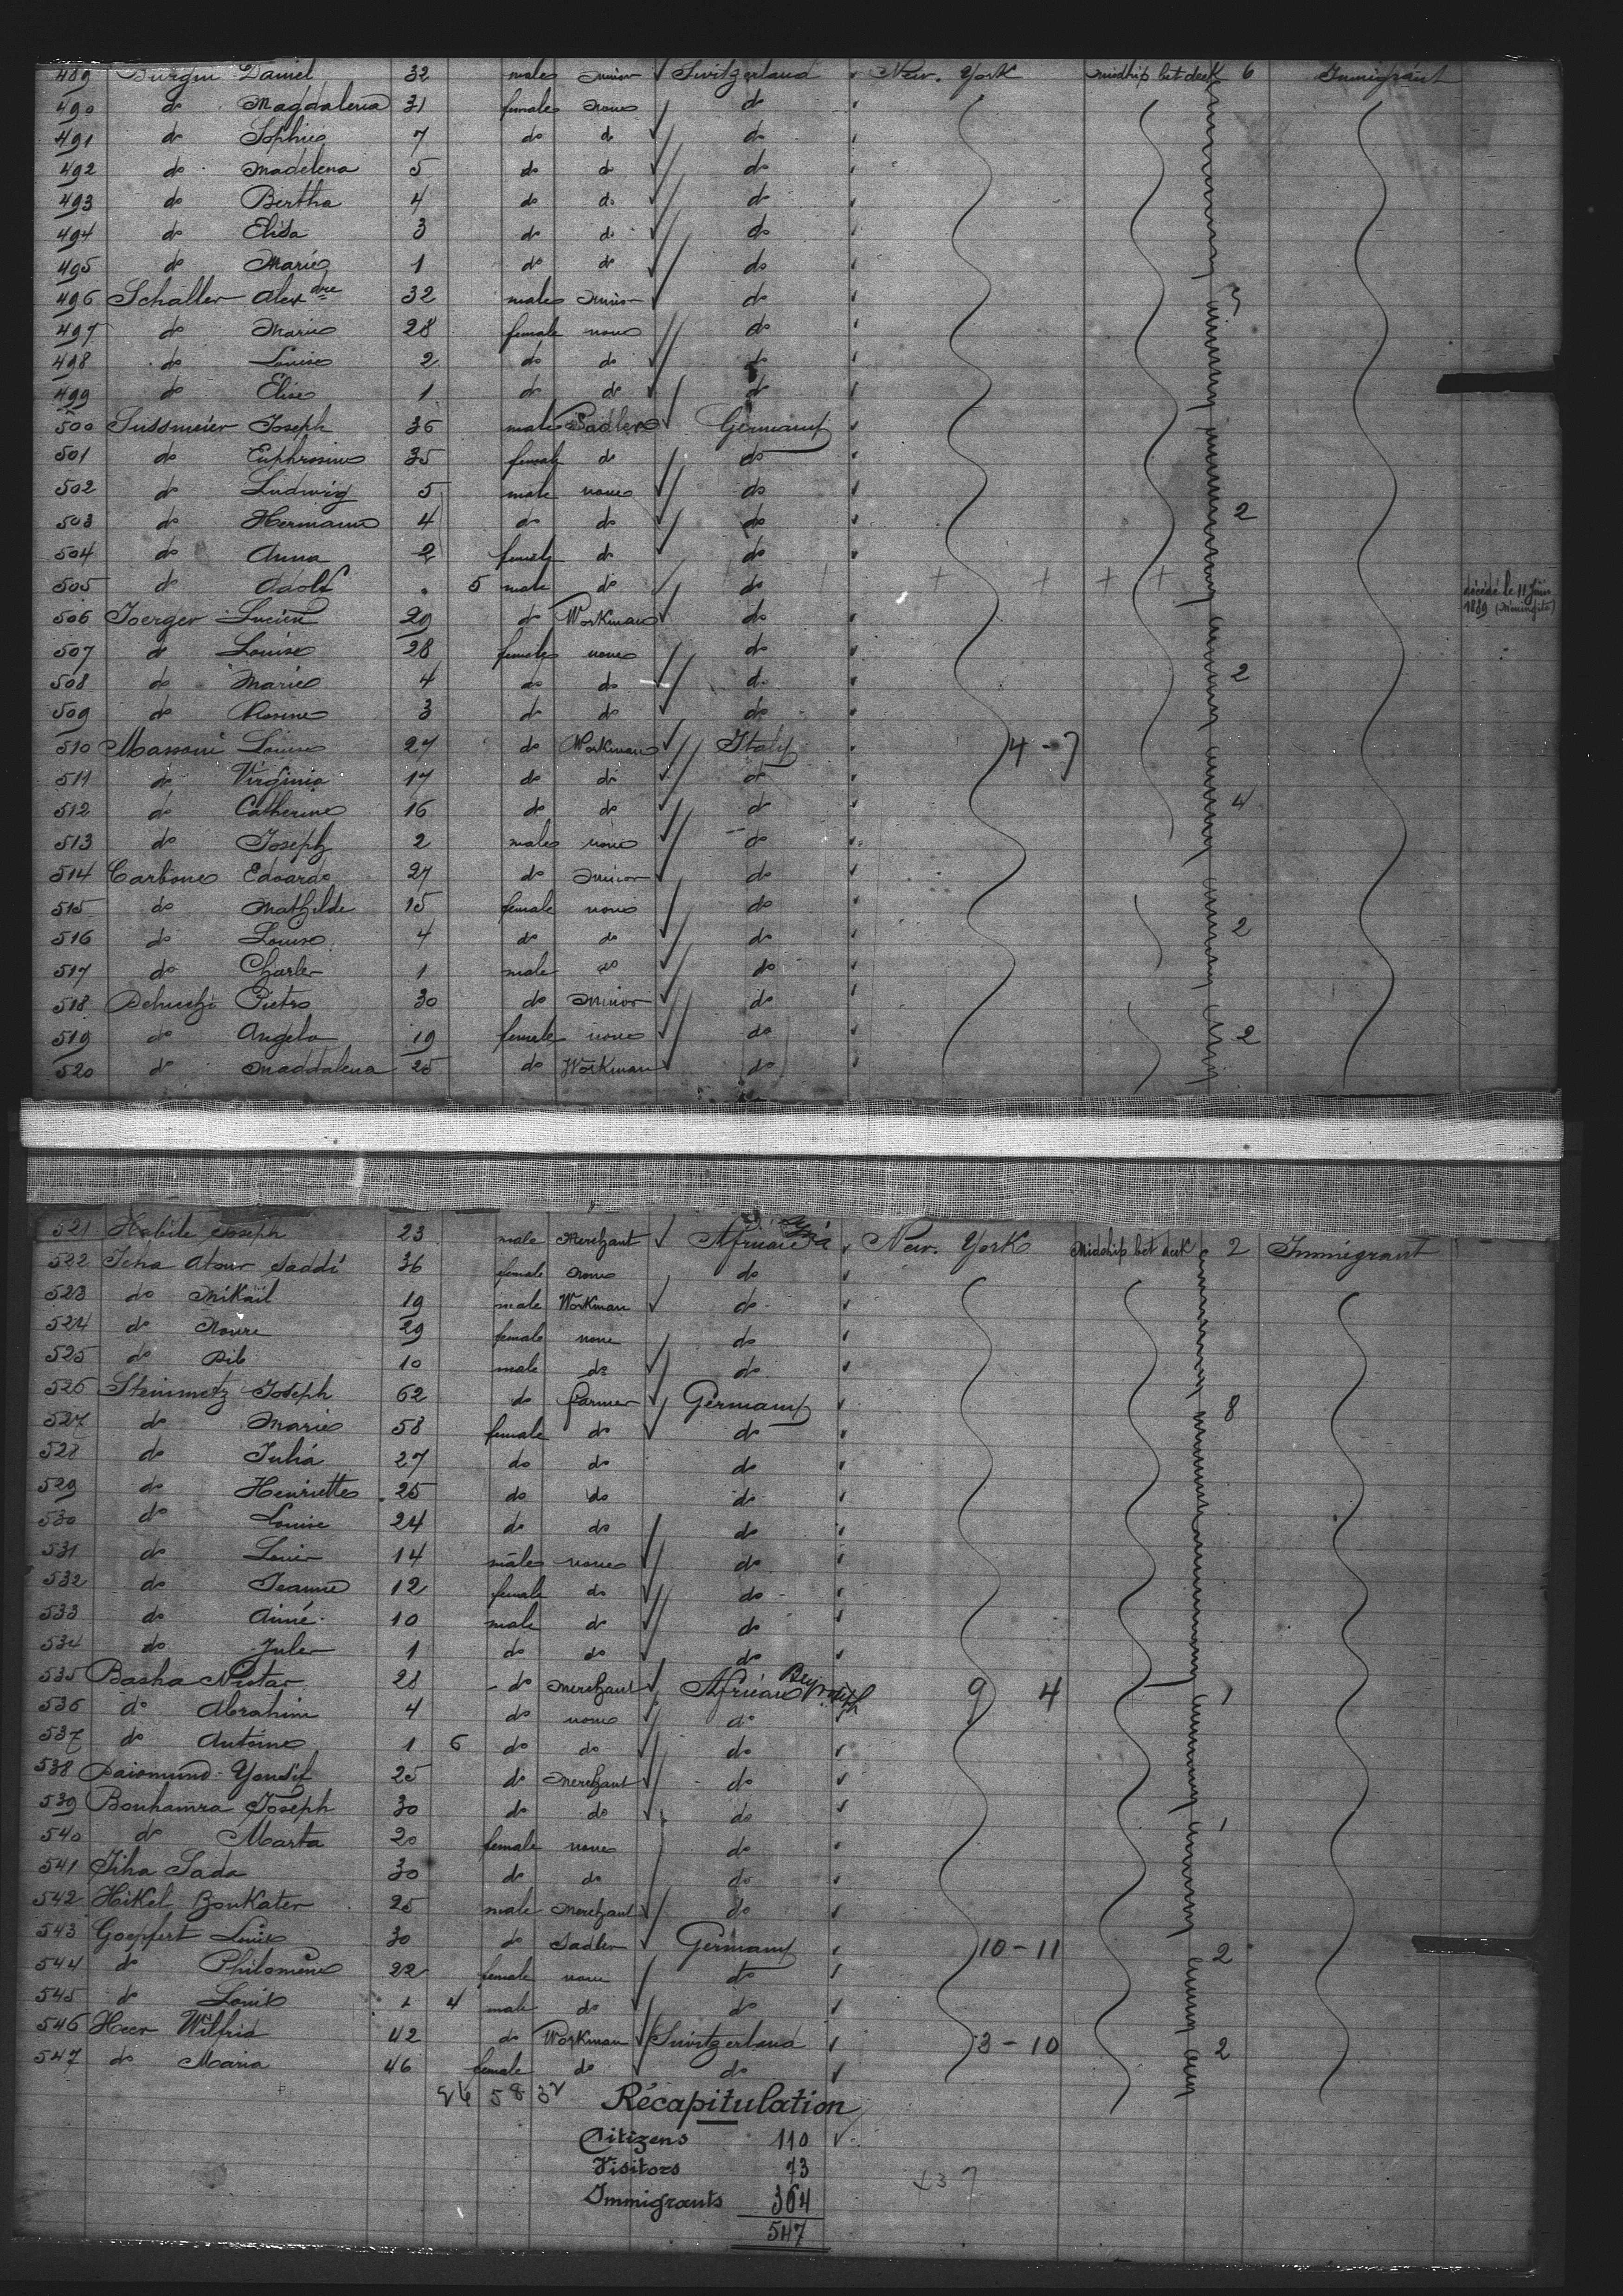 489 Burgin Daniel 32 male minor Switzerland New. York midship bet deck 6 Immigrant
490 do Magdalena 31 female none do
491 do Sophie 7 do do do
492 do Madelena 5 do do do
493 do Bertha 4 do do do
494 do Elisa 3 do do do
495 do Marie 1 do do do
496 Schaller Alexdre 32 male minor do 3
497 do Marie 28 female none do
498 do Louise 2 do do do
499 do Elise 1 do do do
500 Sussmeier Joseph 36 male Sadler Germany
501 do Euphrosine 35 female do do
502 do Ludwig 5 male none do
503 do Hermann 4 do do do 2
504 do Anna 2 female do do
505 do Adolf . 5 male do do + + + + + décédé le 11 Juin 1889 (Méningite)
506 Joerger Lucien 29 do Workman do
507 do Louise 28 female none do
508 do Marie 4 do do do 2
509 do Rosine 3 do do do
510 Massoni Louise 27 do Workman Italy 4 - 7
511 do Virginia 17 do do do
512 do Catherine 16 do do do 4
513 do Joseph 2 male none do
514 Carbone Edoardo 27 do minor do
515 do Mathilde 15 female none do
516 do Louise 4 do do do 2
517 do Charles 1 male do do
518 Pietro 30 do minor do
519 do Angela 19 female none do 2
520 do Maddalena 25 do Workman do
521 Habile Joseph 23 male Merchant New. York Midship bet deck 2 Immigrant
522 Icha Atour Saddi 36 female none do
523 do Mikail 19 male Workman do
524 do Noure 29 female none do
525 do Dib 10 male do do
526 Steinmetz Joseph 62 do farmer Germany 8
527 do Marie 58 female do do
528 do Julia 27 do do do
529 do Henriette 25 do do do
530 do Louise 24 do do do
531 do Louis 14 male none do
532 do Jeanne 12 female do do
533 do Aimé 10 male do do
534 do Jules 1 do do do
535 Basha Nistar 28 do Merchant 9 4 1
536 do Abrahim 4 do none do
537 do Antoine 1 6 do do do
538 Daiomund Yousif 25 do Merchant do
539 Bouhamra Joseph 30 do do do
540 do Marta 20 female none do 1
541 Jiha Sada 30 do do do
542 Hikel Boukater 25 male Merchant do
543 Goepfert Louis 30 do Sadler Germany 10 - 11 2
544 do Philomène 22 female none do
545 do Louis 4 male do do
546 Heer Wilfrid 42 do Workman Switzerland 3 - 10 2
547 do Maria 46 female do do
58 32 Récapitulation
Citizens 110
Visitors 73
Immigrants 364
547